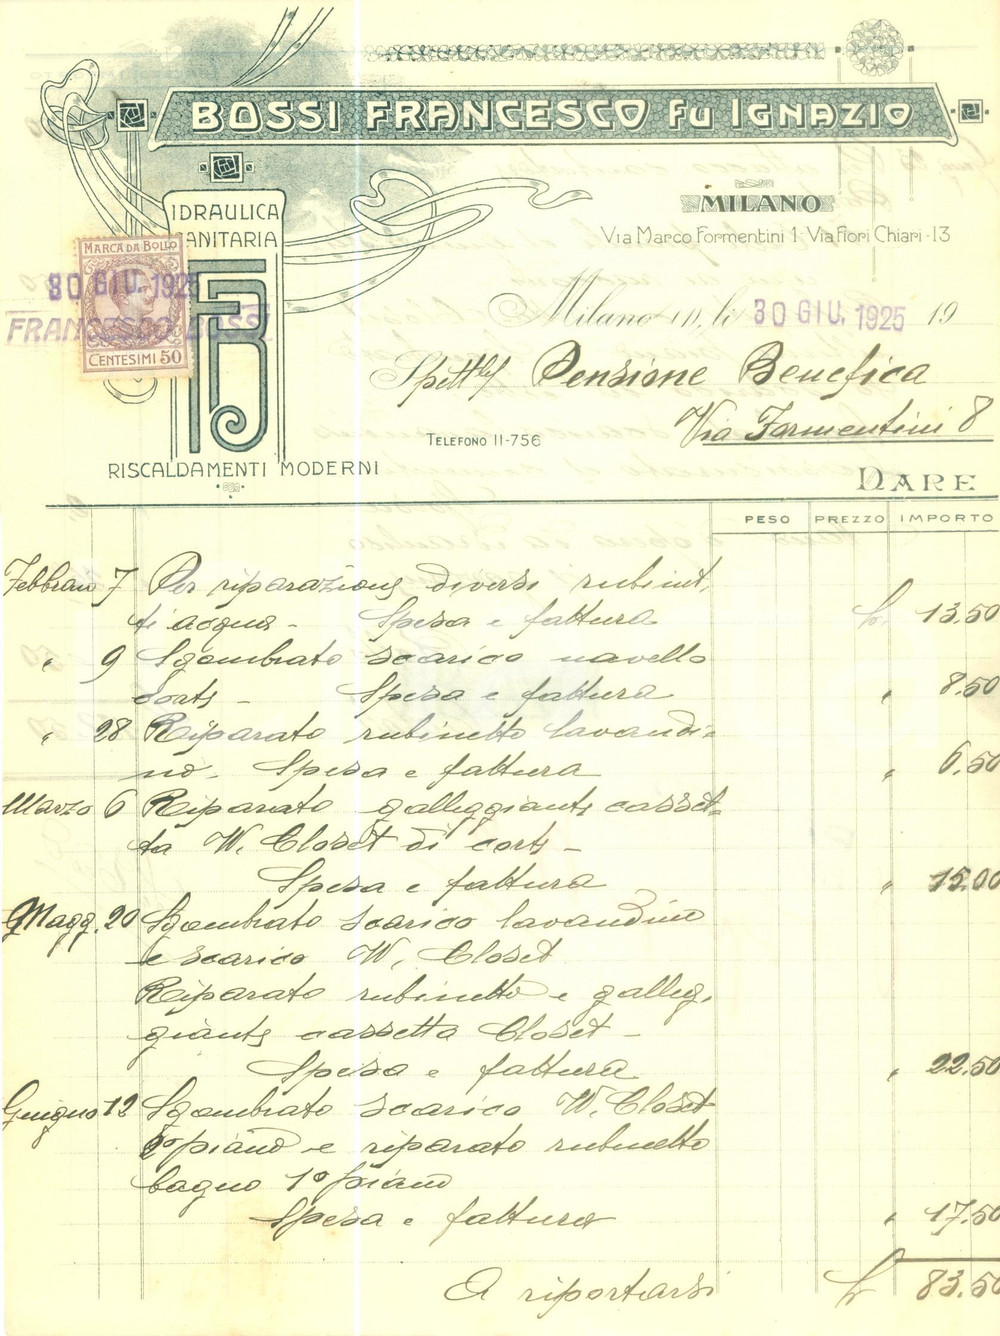 BOSSI FRANCESCO FU IGNAZIO
IDRAULICA
SANITARIA
FB
RISCALDAMENTI MODERNI
MARCA DA BOLLO
CENTESIMI 50
30 GIU. 1925
FRANCESCO BOSSI
MILANO
Via Marco Formentini 1 · Via Fiori Chiari · 13
Milano, li 30 GIU. 1925 19
Spett.le Pensione Benefica
Via Formentini 8
TELEFONO 11-756
DARE
PESO PREZZO IMPORTO
Febbraio 7 Per riparazione diversi rubinet,
ti acqua - Spesa e fattura L. 13.50
" 9 Sgombrato scarico navello
corte - Spesa e fattura " 8.50
" 28 Riparato rubinetto lavandi=
no. Spesa e fattura " 6.50
Marzo 6 Riparato galleggiante casset=
ta W. Closet di corte -
Spesa e fattura " 15.00
Magg. 20 Sgombrato scarico lavandino
e scarico W. Closet
Riparato rubinetto e galleg,
giante cassetta Closet -
Spesa e fattura " 22.50
Giugno 12 Sgombrato scarico W. Closet
2º piano e riparato rubinetto
bagno 1º piano
Spesa e fattura " 17.50
A riportarsi L 83.50